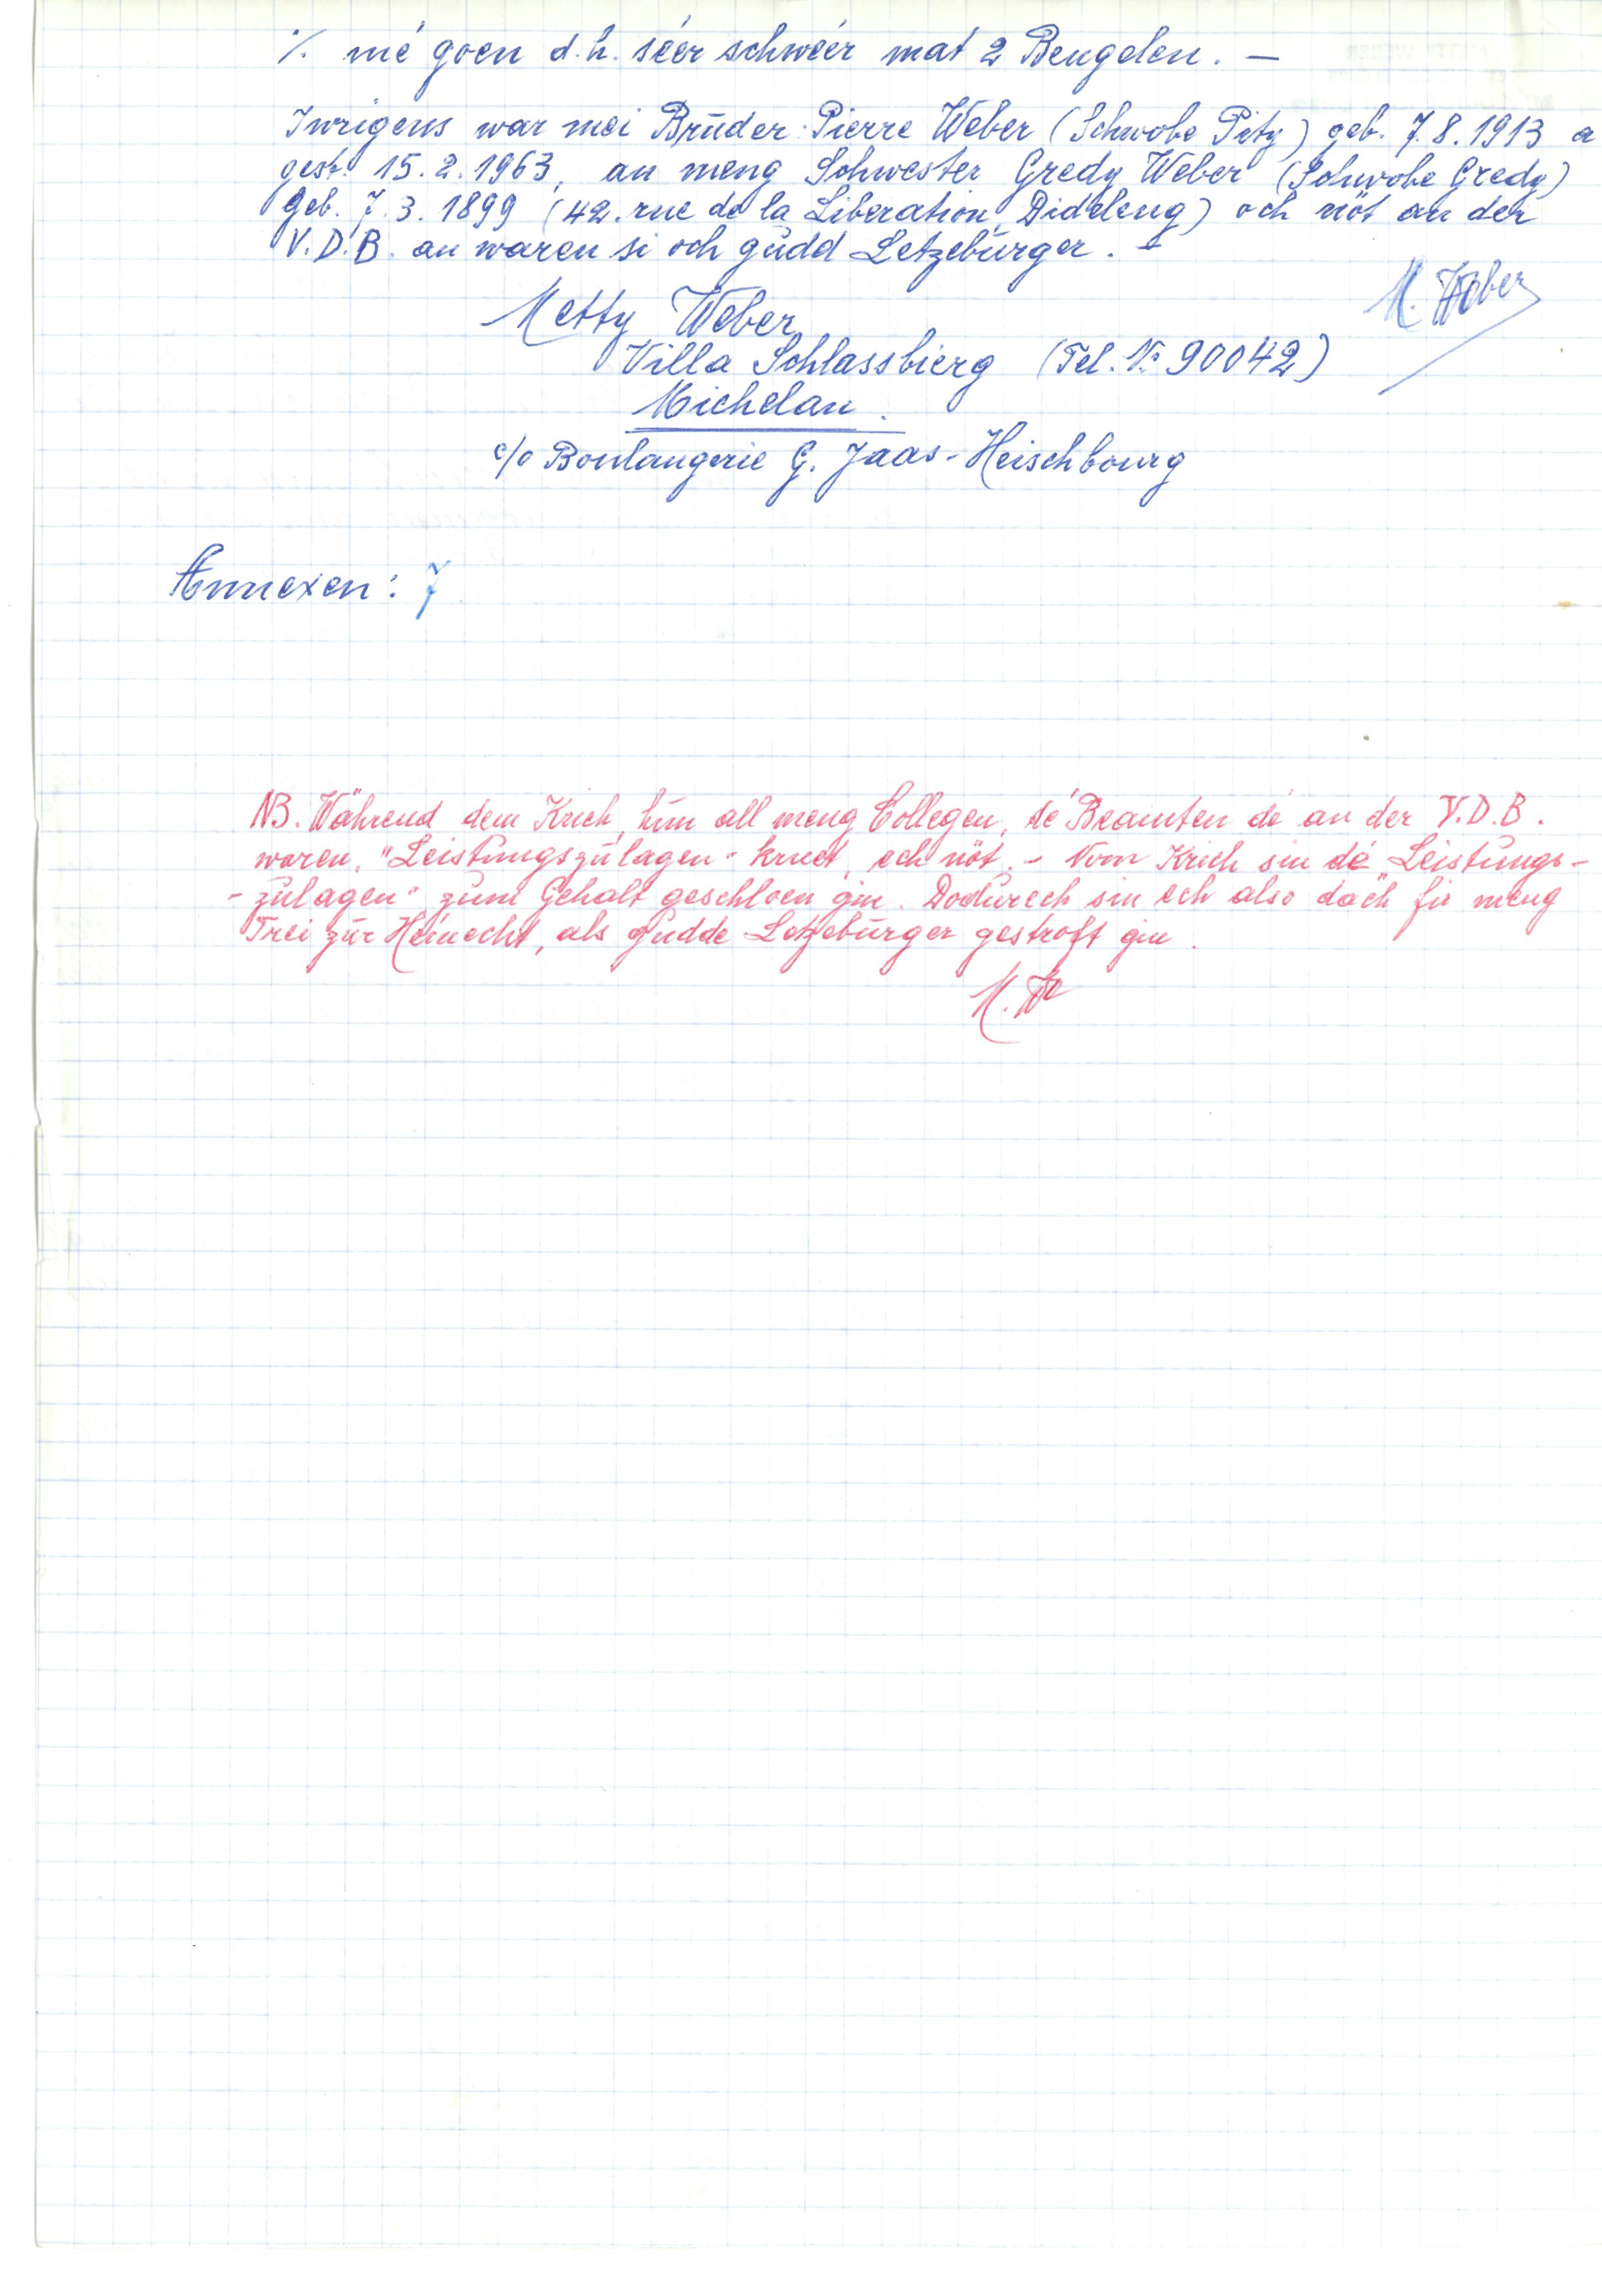 ./. mé goen d.h. séer schwéer mat 2 Bengelen. —
Iwrigens war mei Brŭder: Pierre Weber (Schwobe Pity) geb. 7.8.1913 a
gest. 15.2.1963, an meng Schwester Gredy Weber (Schwobe Gredy)
geb. 7.3.1899 (42. rue de la Liberation Dideleng) och nöt an der
V.D.B. an waren si och gŭdd Letzebŭrger. —
M. Weber
Metty Weber
Villa Schlassbierg (Tel. No 90042)
Michelau.
c/o Boulangerie G. Jaas-Heischbourg
Annexen: 7
NB. Während dem Krich, hun all meng Collegen, dé Beamten dé an der V.D.B.
waren, "Leistŭngszŭlagen" krŭct, ech nöt. - Vom Krich sin dé "Leistŭngs-
-zŭlagen" zŭm Gehalt geschloen gin. Dodŭrech sin ech also dach fir meng
Trei zŭr Hémecht, als gŭdde Letzebŭrger gestroft gin.
M. W